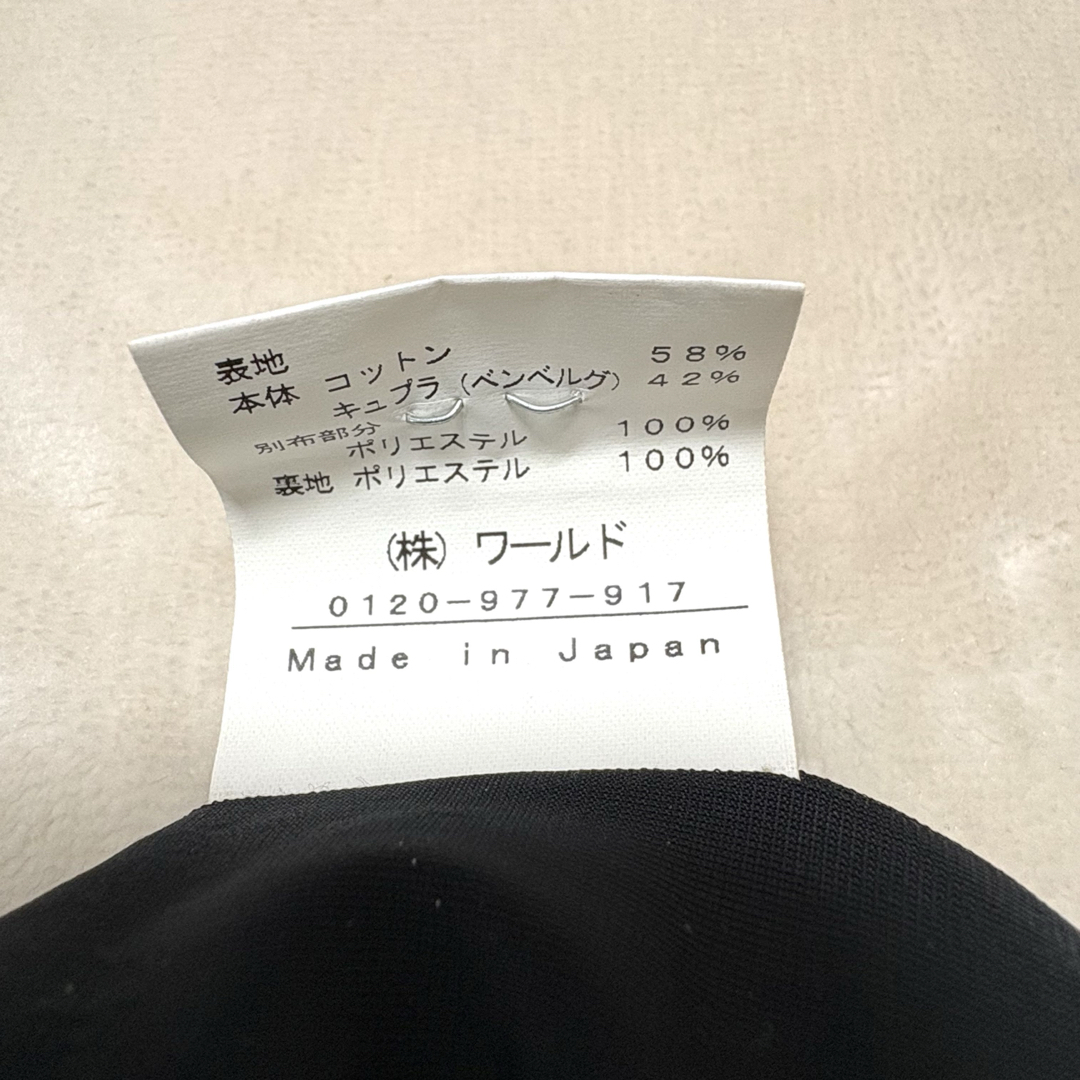 表地
本体 コットン 58%
キュプラ(ベンベルグ) 42%
別布部分
ポリエステル 100%
裏地 ポリエステル 100%
(株) ワールド
0120-977-917
Made in Japan